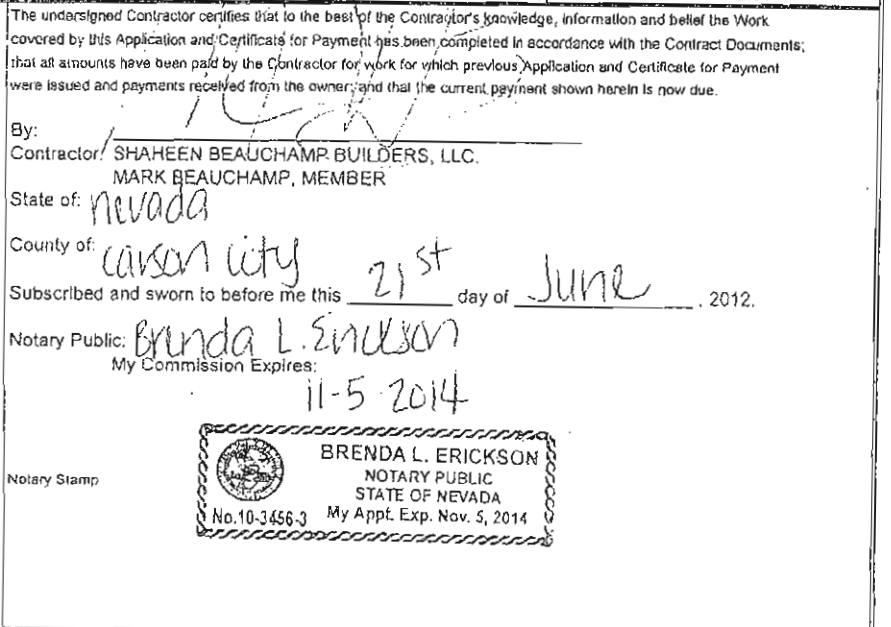 The undersigned Contractor certifies that to the best of the Contractor's knowledge, information and belief the Work
covered by this Application and Certificate for Payment has been completed in accordance with the Contract Documents;
that all amounts have been paid by the Contractor for work for which previous Application and Certificate for Payment
were issued and payments received from the owner, and that the current payment shown herein is now due.
By:
Contractor: SHAHEEN BEAUCHAMP BUILDERS, LLC.
MARK BEAUCHAMP, MEMBER
State of: nevada
County of: carson city
Subscribed and sworn to before me this 21st day of June, 2012.
Notary Public: Brenda L. Erickson
My Commission Expires:
11-5-2014
Notary Stamp
BRENDA L. ERICKSON
NOTARY PUBLIC
STATE OF NEVADA
No.10-3456-3 My Appt. Exp. Nov. 5, 2014